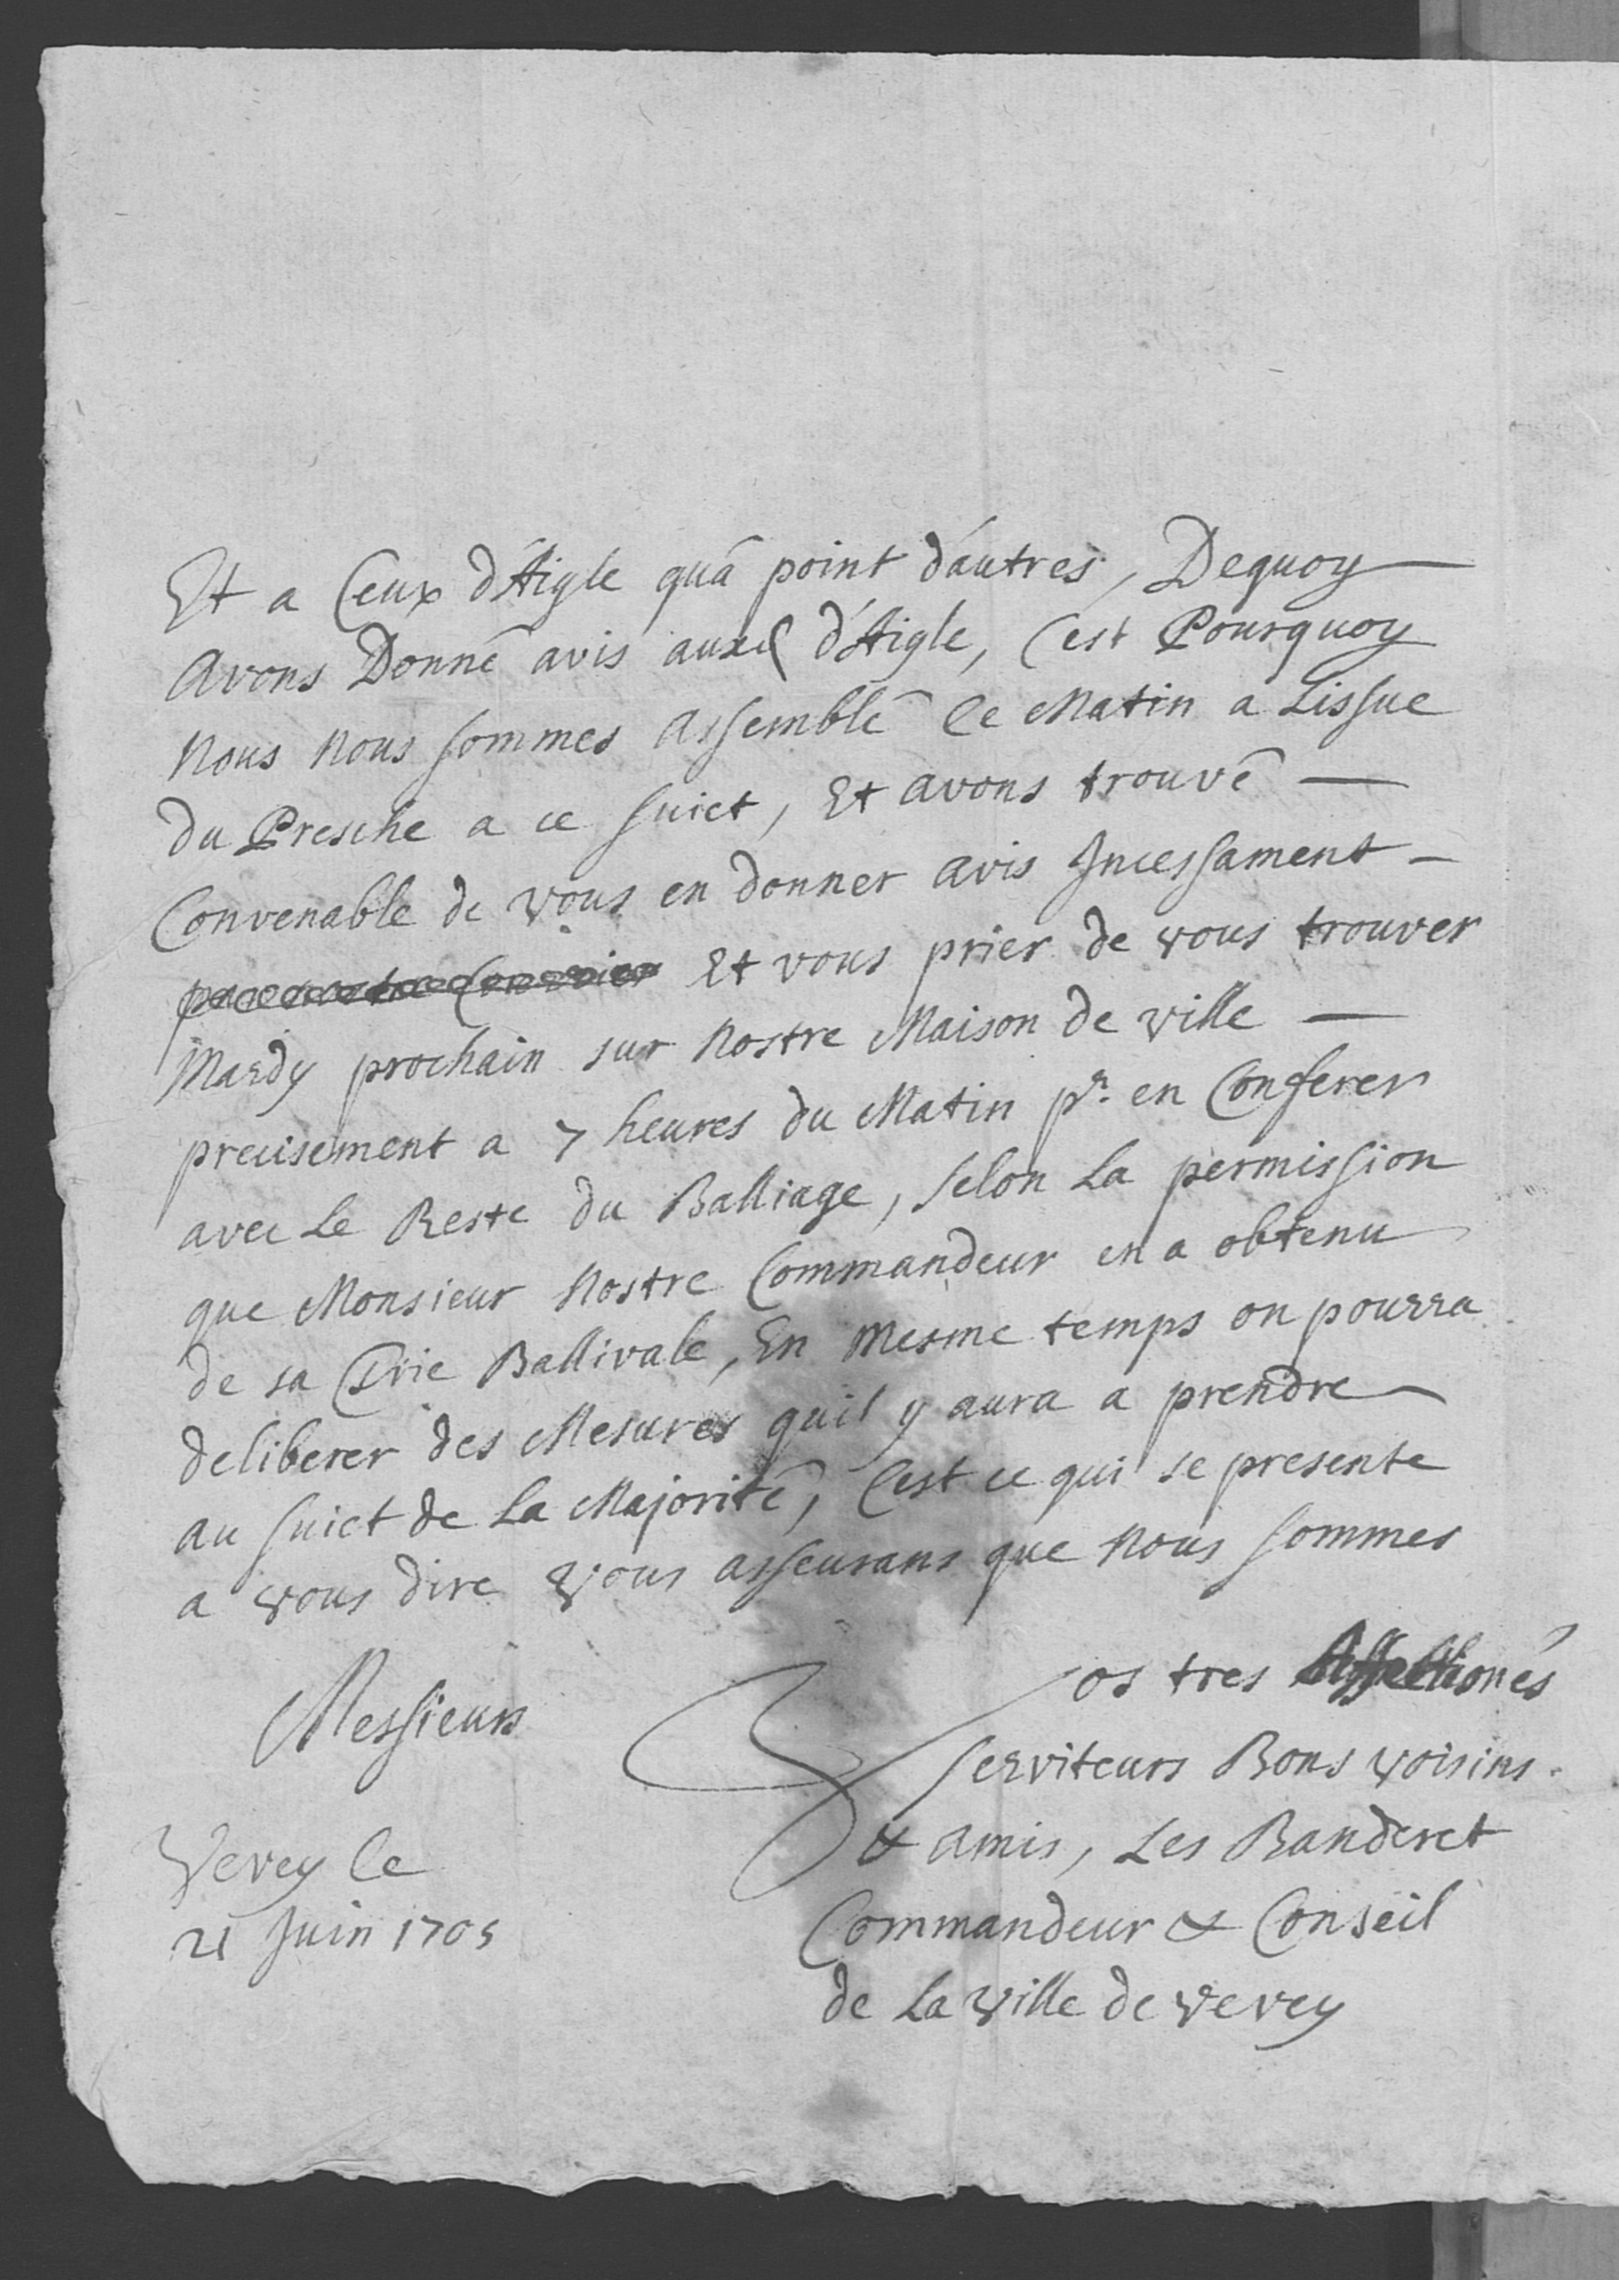 Et a Ceux d'Aigle qu'a point d'autres, Dequoy
avons Donné avis auxd d'Aigle, C'est Pourquoy
Nous Nous sommes assemblé Ce Matin a Lissue
du Presche a ce suiet, Et avons trouvé
Convenable de vous en donner avis Incessament
Et vous prier de vous trouver
Mardy prochain sur Nostre Maison de ville
precisement a 7 heures du Matin pr. en Conferer
avec Le Reste du Balliage, selon La permission
que Monsieur Nostre Commandeur en a obtenu
de sa Srie Ballivale, En Mesme temps on pourra
deliberer des Mesures quil y aura a prendre
au suiet de La Majorité, Cest ce qui se presente
a vous dire Vous asseurans que Nous sommes
Messieurs
Vos tres Affectionés
serviteurs Bons voisins
& amis, Les Banderet
Commandeur & Conseil
de La ville de Vevey
Vevey Ce
21 Juin 1705